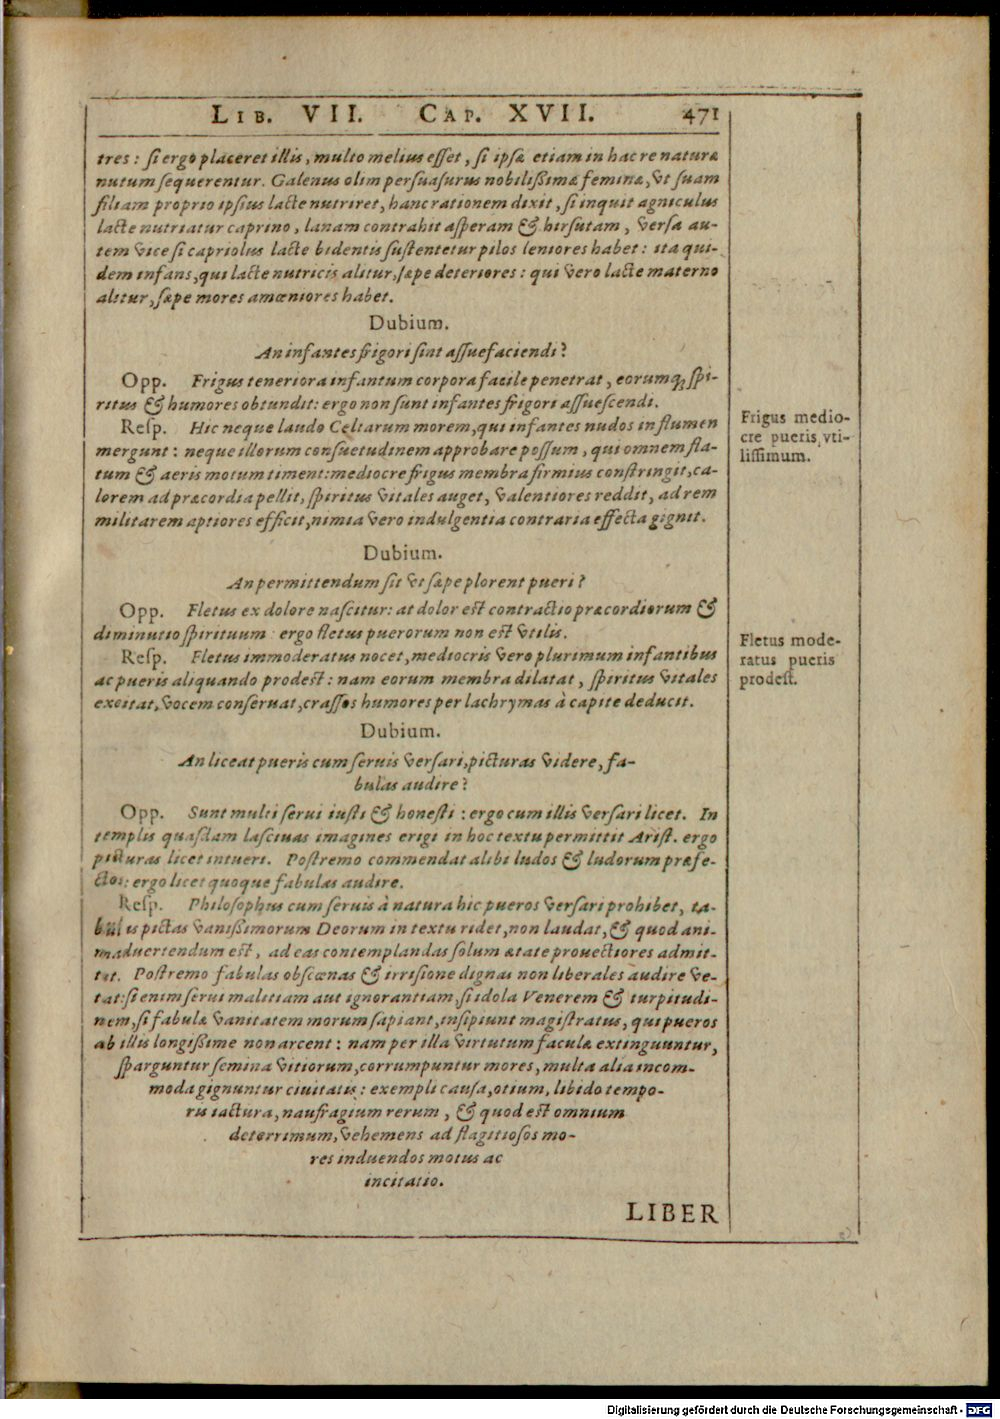 LIB. VII. CAP. XVII. 471
tres: si ergo placeret illis, multo melius esset, si ipsæ etiam in hac re naturæ
nutum sequerentur. Galenus olim persuasurus nobilißimæ feminæ, vt suam
filiam proprio ipsius lacte nutriret, hanc rationem dixit, si inquit agniculus
lacte nutriatur caprino, lanam contrahit asperam & hirsutam, versa au-
tem vice si capriolus lacte bidentis sustentetur pilos leniores habet: ita qui-
dem infans, qui lacte nutricis alitur, sæpe deteriores: qui vero lacte materno
alitur, sæpe mores amœniores habet.
Dubium.
An infantes frigori sint assuefaciendi?
Opp. Frigus teneriora infantum corpora facile penetrat, eorumq́ spi-
ritus & humores obtundit: ergo non sunt infantes frigori assuescendi.
Resp. Hic neque laudo Celtarum morem, qui infantes nudos in flumen
mergunt: neque illorum consuetudinem approbare possum, qui omnem fla-
tum & aeris motum timent: mediocre frigus membra firmius constringit, ca-
lorem ad præcordia pellit, spiritus vitales auget, valentiores reddit, ad rem
militarem aptiores efficit, nimia vero indulgentia contraria effecta gignit.
Frigus medio-
cre pueris vti-
lissimum.
Dubium.
An permittendum sit vt sæpe plorent pueri?
Opp. Fletus ex dolore nascitur: at dolor est contractio præcordiorum &
diminutio spirituum: ergo fletus puerorum non est vtilis.
Resp. Fletus immoderatus nocet, mediocris vero plurimum infantibus
ac pueris aliquando prodest: nam eorum membra dilatat, spiritus vitales
excitat, vocem conseruat, crassos humores per lachrymas à capite deducit.
Fletus mode-
ratus pueris
prodest.
Dubium.
An liceat pueris cum seruis versari, picturas videre, fa-
bulas audire?
Opp. Sunt multi serui iusti & honesti: ergo cum illis versari licet. In
templis quasdam lasciuas imagines erigi in hoc textu permittit Arist. ergo
picturas licet intueri. Postremo commendat alibi ludos & ludorum præfe-
ctos: ergo licet quoque fabulas audire.
Resp. Philosophus cum seruis à natura hic pueros versari prohibet, ta-
bulis pictas vanißimorum Deorum in textu ridet, non laudat, & quod ani-
maduertendum est, ad eas contemplandas solum ætate prouectiores admit-
tit. Postremo fabulas obscœnas & irrisione dignas non liberales audire ve-
tat: si enim serui malitiam aut ignorantiam, si idola Venerem & turpitudi-
nem, si fabulæ vanitatem morum sapiant, insipiunt magistratus, qui pueros
ab illis longißime non arcent: nam per illa virtutum faculæ extinguuntur,
sparguntur semina vitiorum, corrumpuntur mores, multa alia incom-
moda gignuntur ciuitatis: exempli causa, otium, libido tempo-
ris iactura, naufragium rerum, & quod est omnium
deterrimum, vehemens ad flagitiosos mo-
res induendos motus ac
incitatio.
LIBER
Digitalisierung gefördert durch die Deutsche Forschungsgemeinschaft - DFG